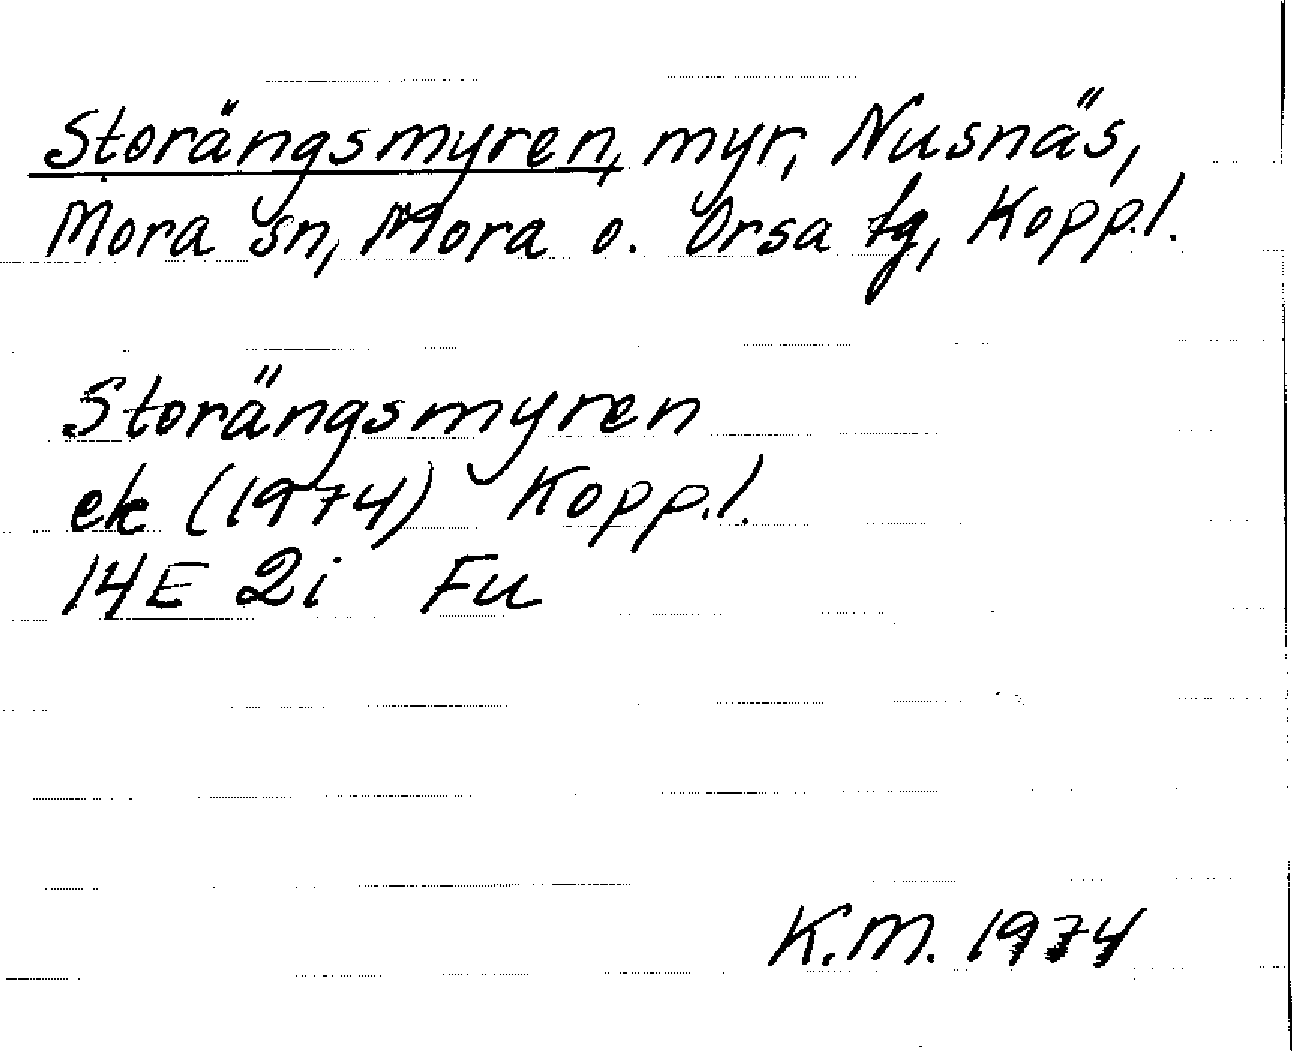 Storängsmyren, myr, Nusnäs,
Mora sn, Mora o. Orsa tg, Kopp.l.
Storängsmyren
ek (1974) Kopp.l.
14E 2i Fu
K.M. 1974